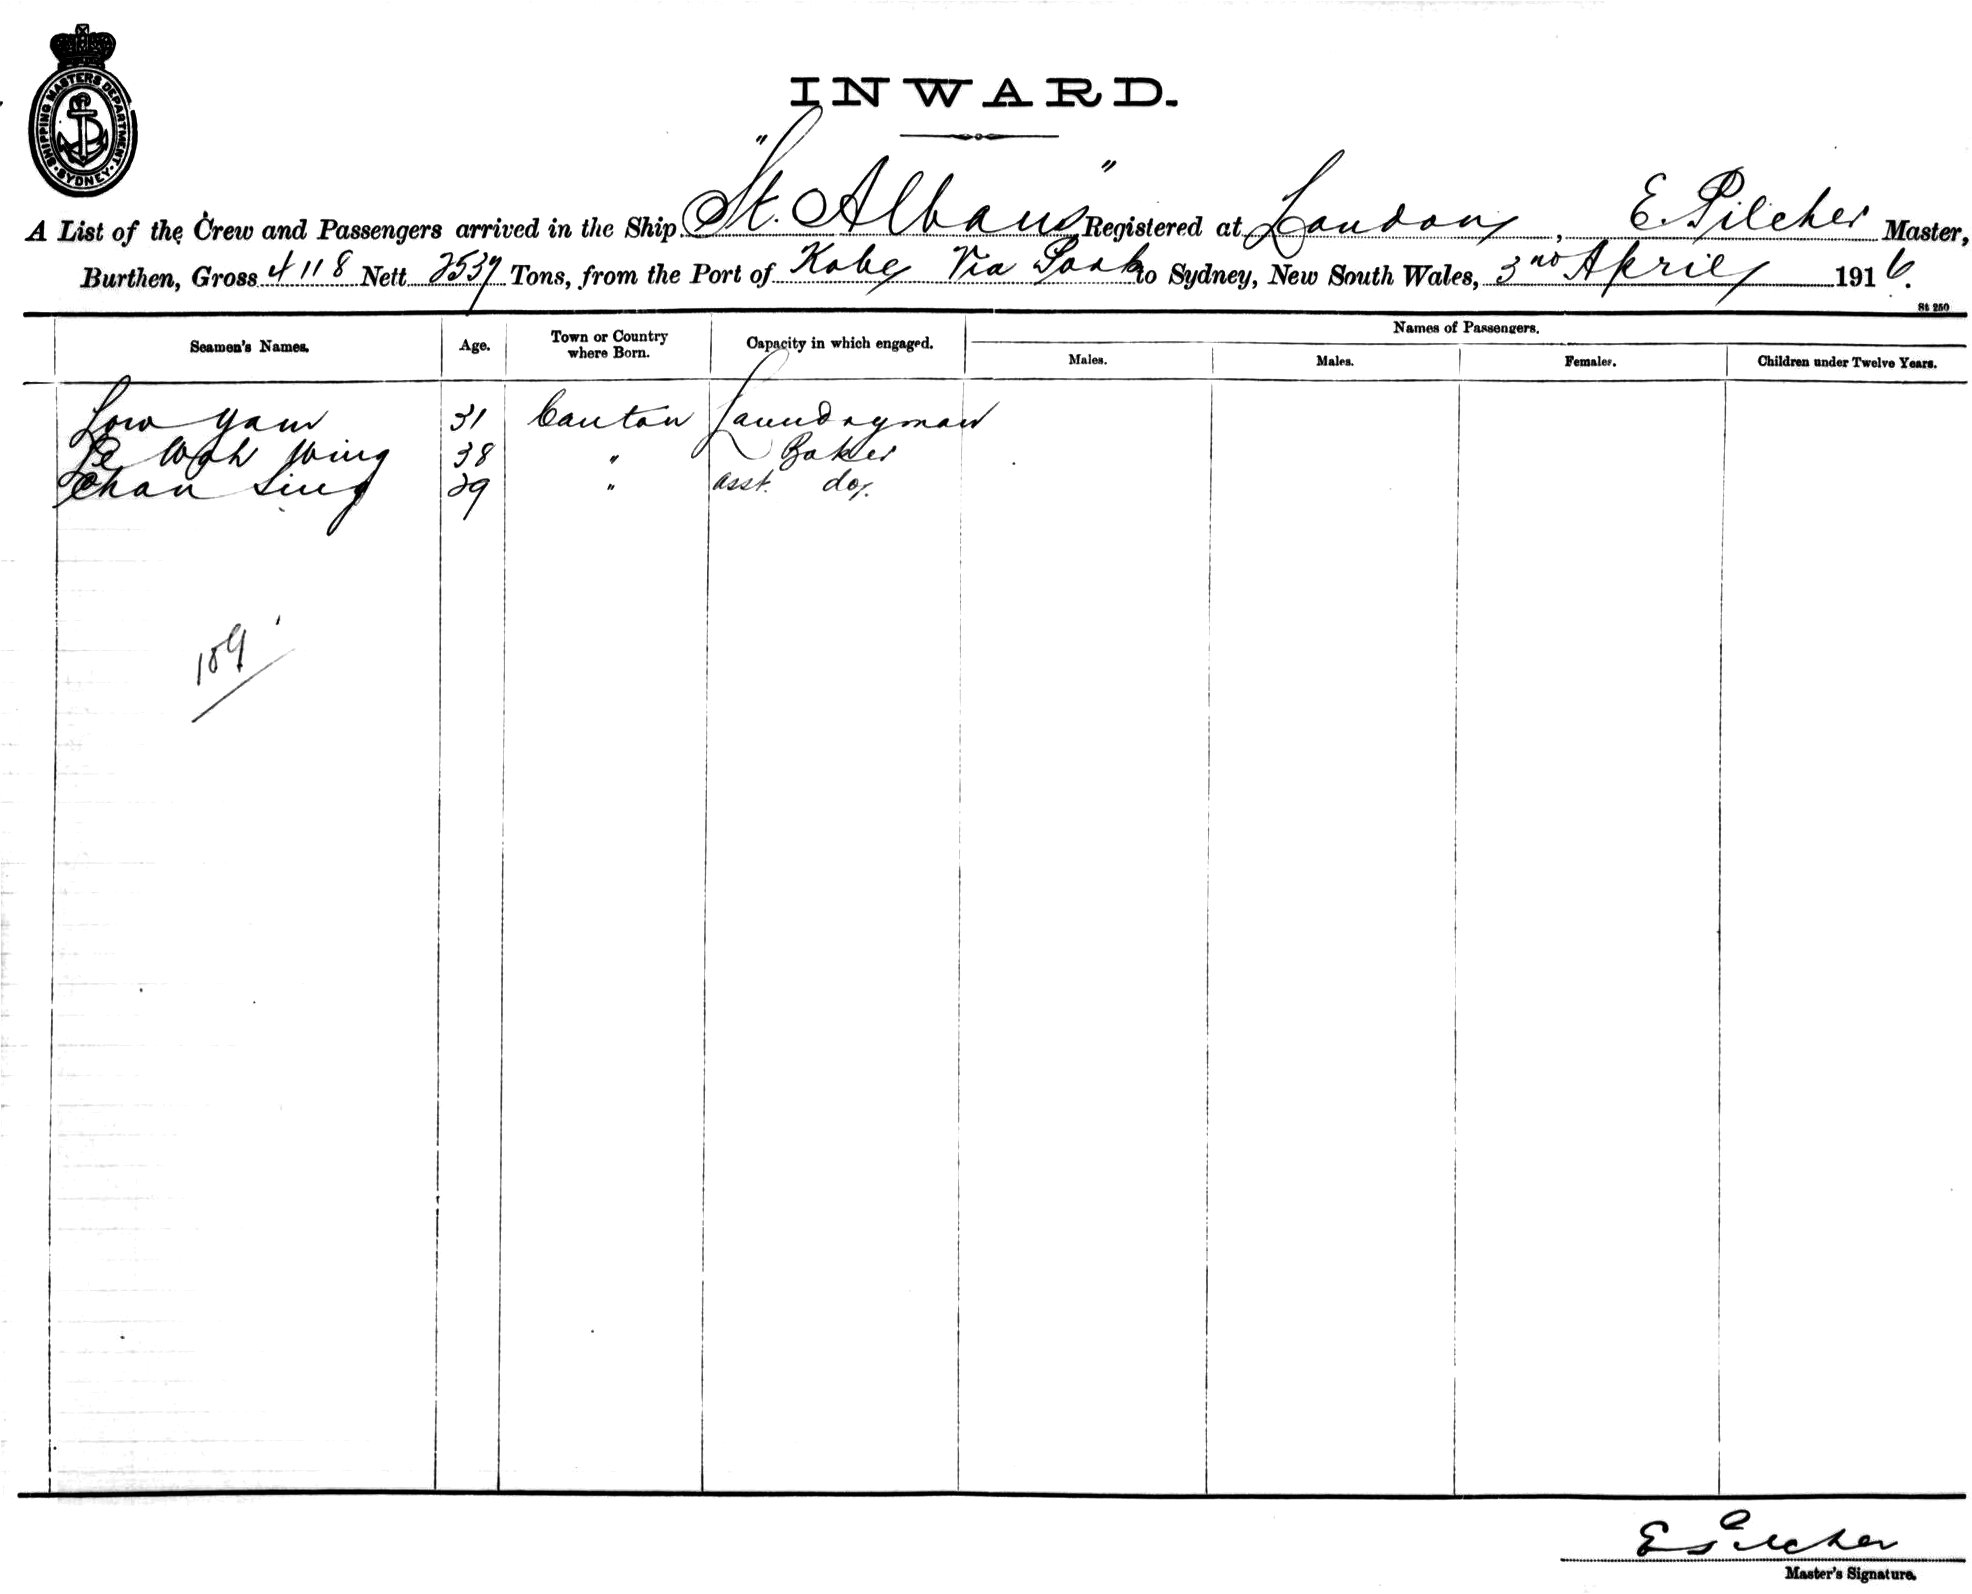 SHIPPING MASTERS DEPARTMENT. SYDNEY.
INWARD.
A List of the Crew and Passengers arrived in the Ship "St. Albans" Registered at London, E. Pilcher Master,
Burthen, Gross 4118 Nett 2537 Tons, from the Port of Kobe Via Ports to Sydney, New South Wales, 3rd April 1916.
St 250
Seamen's Names. Age. Town or Country where Born. Capacity in which engaged. Names of Passengers.
Males. Males. Females. Children under Twelve Years.
Low Yam 31 Canton Laundryman
Wah Wing 38 " Baker
Chan Sing 29 " asst. do.
109
E Pilcher
Master's Signature.